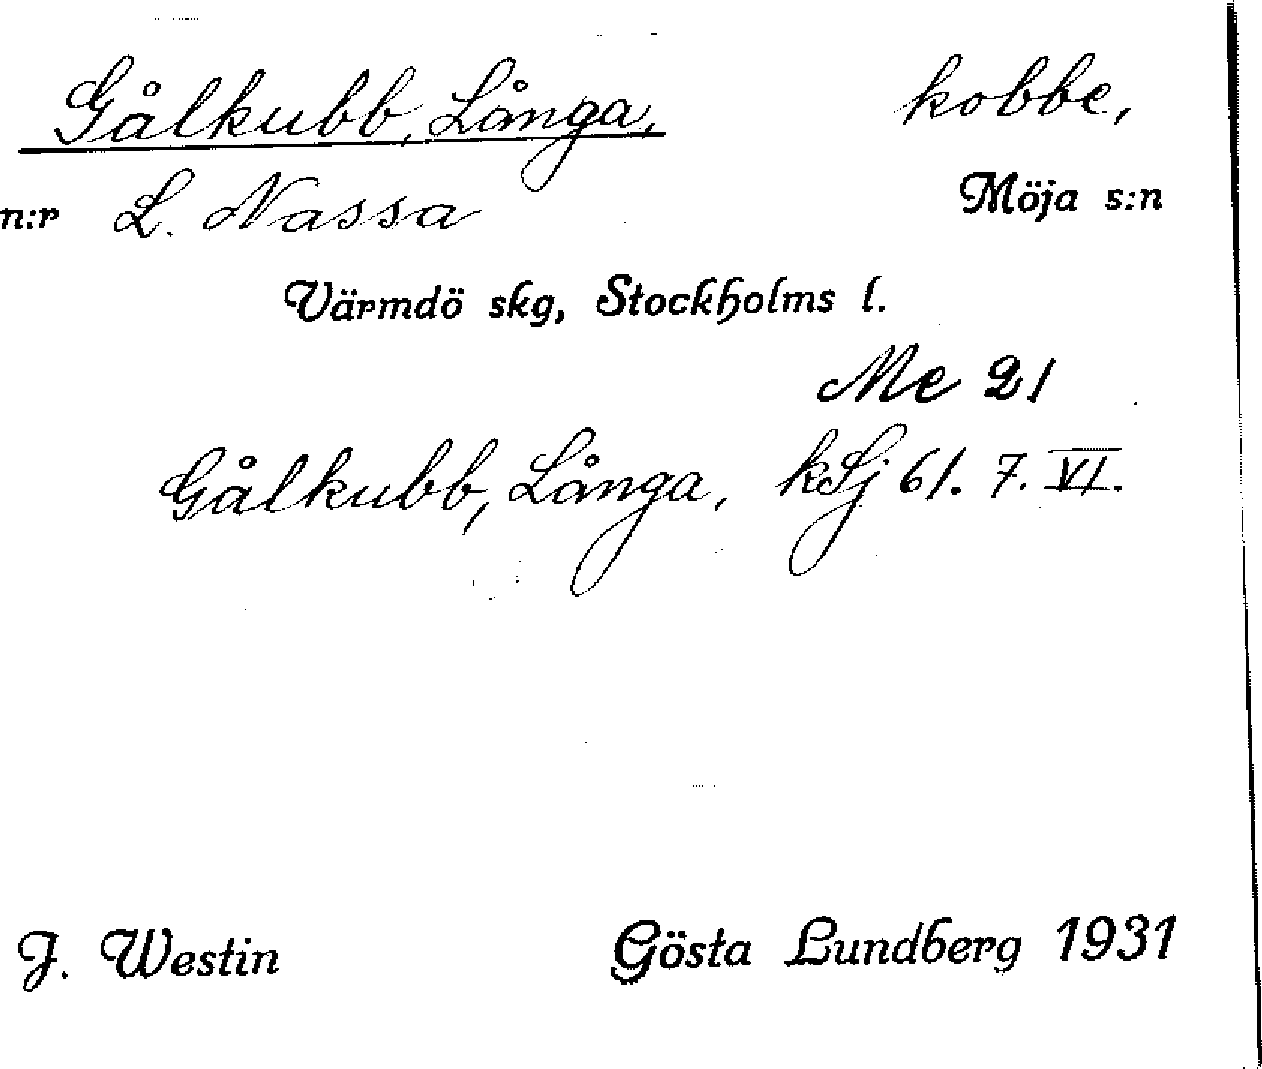 Gålkubb, Långa, kobbe,
n:r L. Nassa Möja s:n
Värmdö skg, Stockholms l.
Me 21
Gålkubb, Långa, kSj 61. 7. VI.
J. Westin Gösta Lundberg 1931